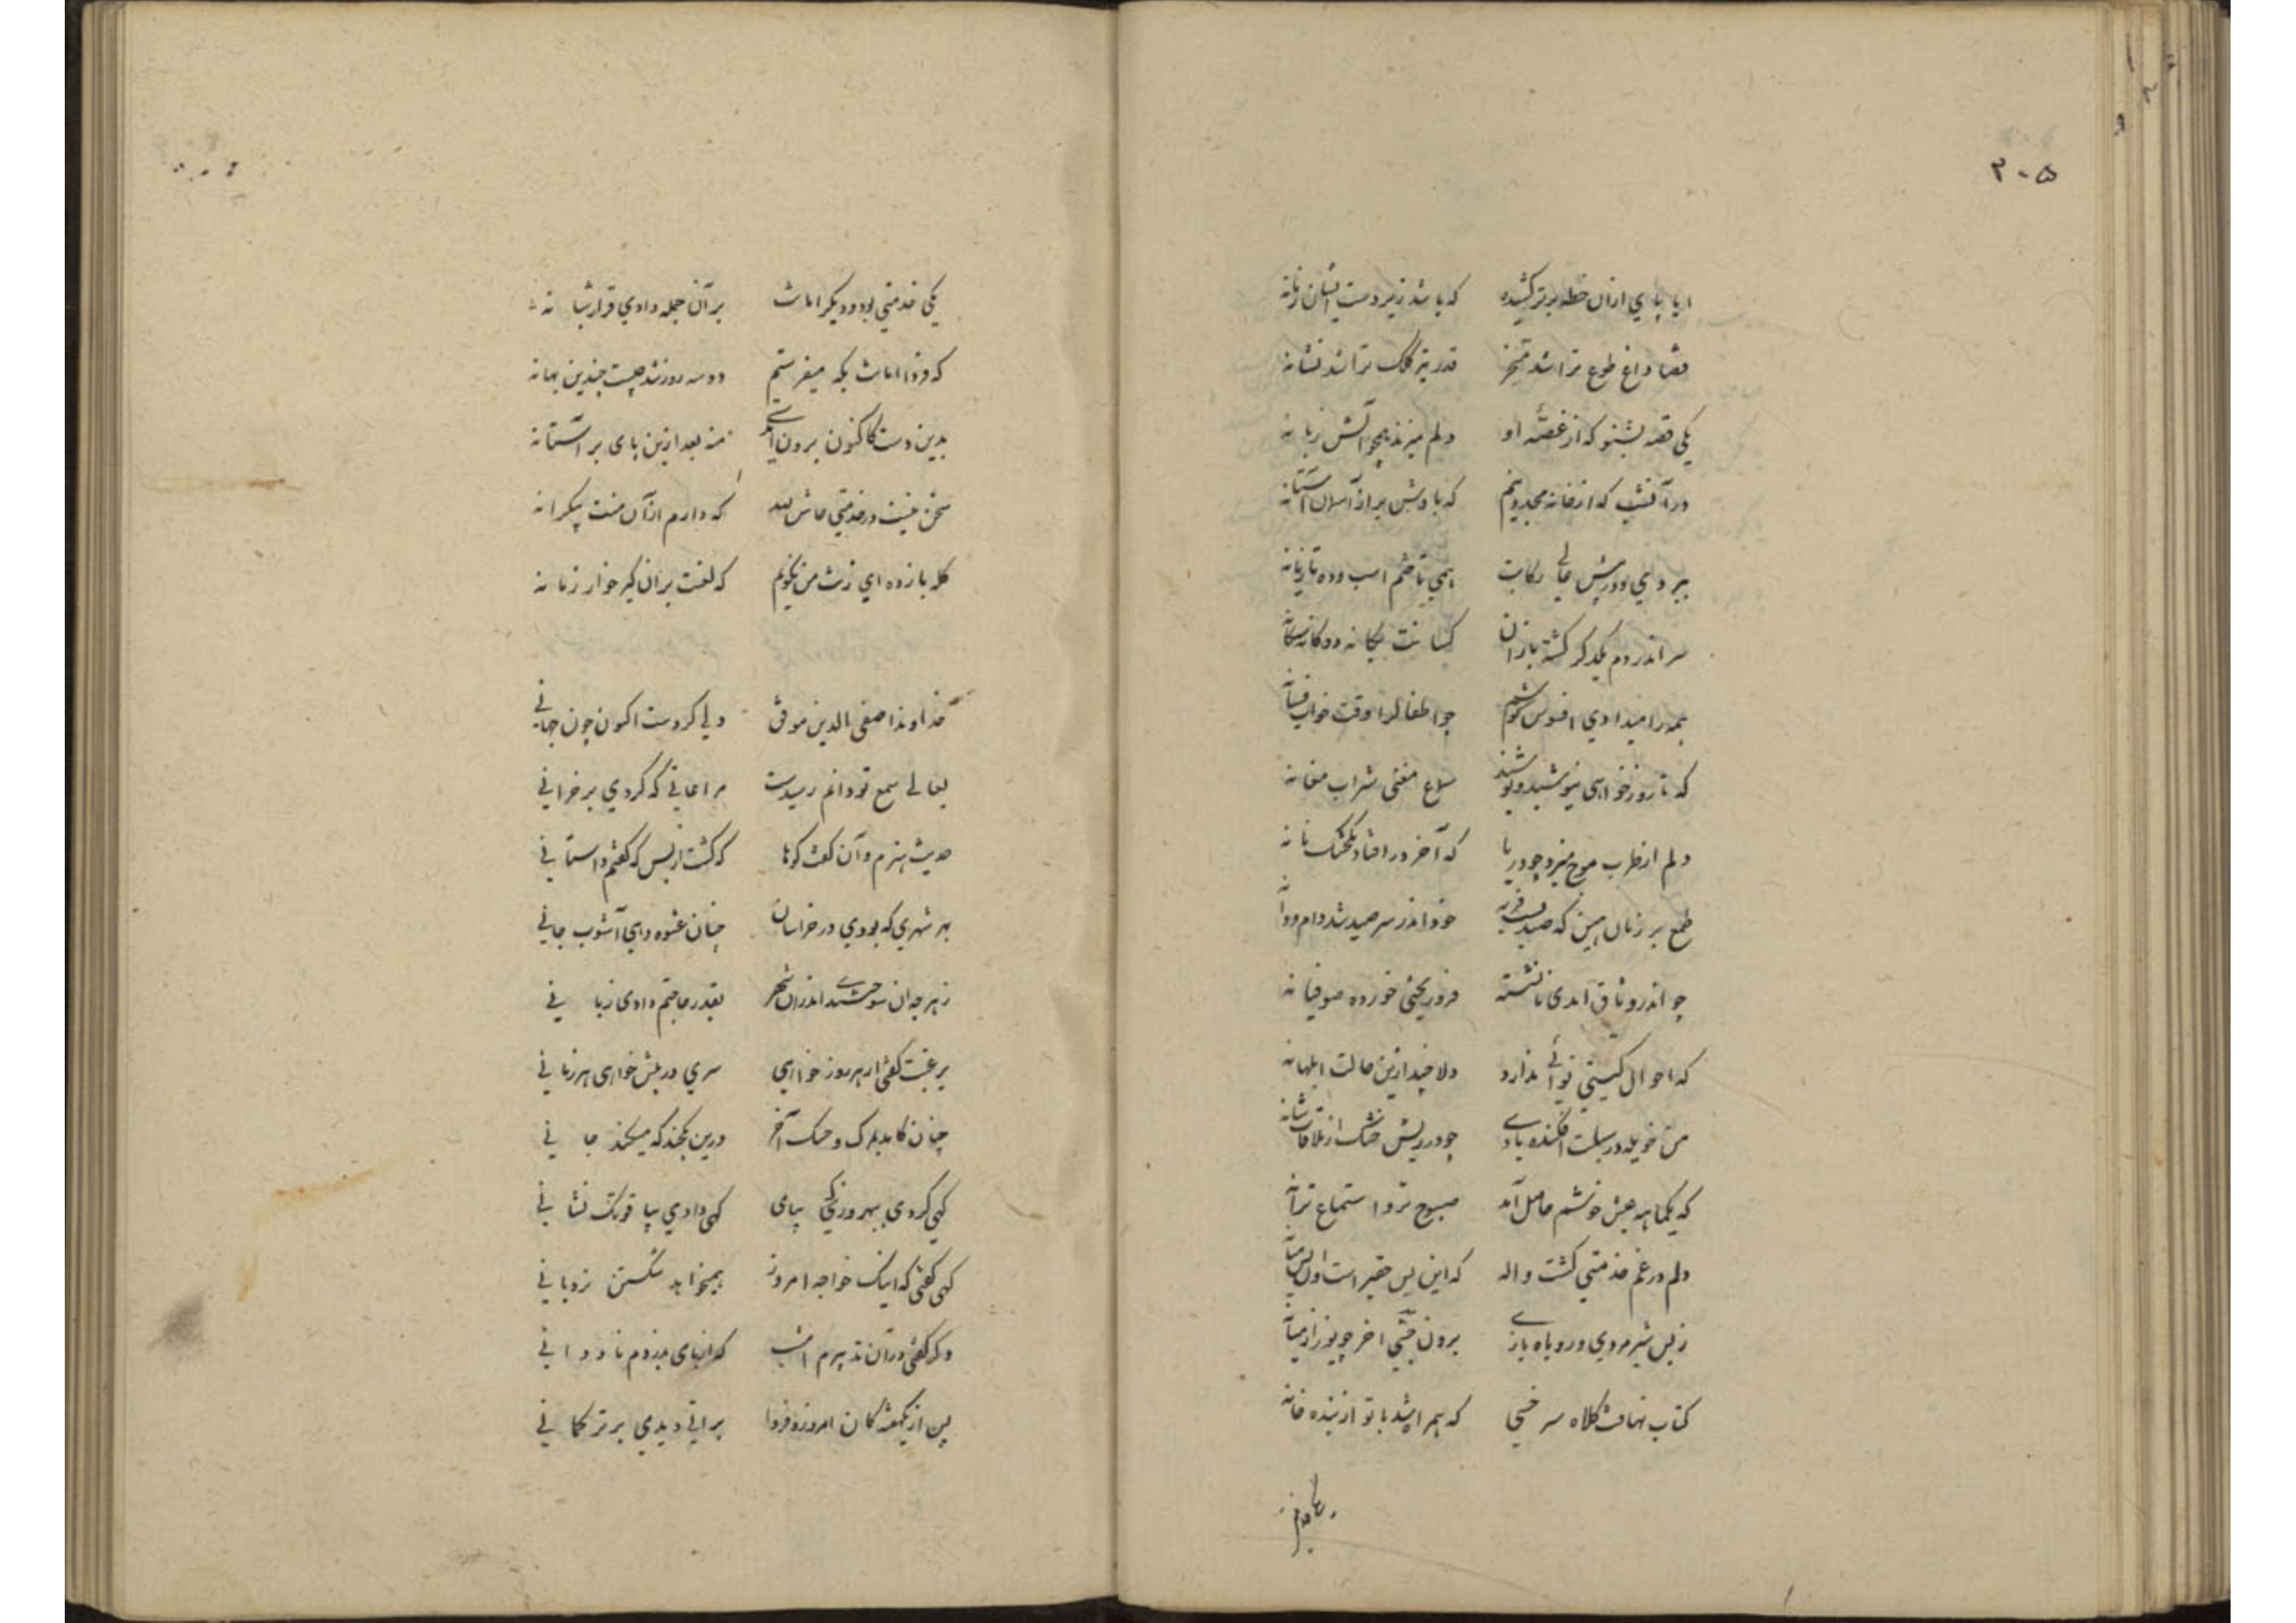 ۳۰۵
ایا پایی از ان خطه برتر کشیده که باشد زبردست ایشان زمانه
قضا داغ طوع ترا شد قدر تیر کلک ترا شد نشانه
یکی قصه بشنو که از غصه او دلم میزند همچو آتش زبانه
در آن شب که از خانه مجد دینم که بادش براز آسمان آستانه
ببر دی و در پیش عالی رکابت همی تاختم اسب و ده تازیانه
سر اندر دم یکدگر کشته یازان کسانت یکانه دوکانه سکانه
همه را میدادی افسوس کوشم چو اطفال را وقت خواب فسانه
که تا روز خواهی نیوشید و نوشید سماع مغنی شراب مغانه
دلم از طرب موج میزد چو دریا که آخر در افتاد بخشک نانه
طمع بر زنان بین که صید خود اندر سر صید شد دام و دانه
چو اندر وثاق امدی نانشسته فرو ریختی خورده صوفیانه
که احوال کیتی نوائی ندارد دلا چند ازین حالت ابلهانه
من خویله در سبلت افکنده بادی چو در ریش خشک از ملاقات شانه
که یکماهه عیش خوشم حاصل آمد صبوح نزد استماع ترانه
دلم در غم خدمتی کشت واله که این بس حقیر است و ان بس میانه
ز بس شیر مردی و روباه بازی برون جستی اخر چو یوز از میانه
کتاب نهادت کلاه سر خسی که همراه شد با تو از بنده خانه
یکی خدمتی بود و دیگر امانت بر آن جمله دادی قرار شبانه
که فردا امانت بکه میفرستم دو سه روز شد چیست چندین بهانه
بدین دست کاکنون برون امدی منه بعد ازین پای بر آستانه
سخن نیست در خدمتی حاش لله که دارم از آن منت بیکرانه
کله بازده ای زنت من نکویم که لعنت بر ان کیر خوار زمانه
خداوندا صفی الدین موفق دلی کردست اکنون چون جهانی
بعالی سمع تو دانم رسیدست مراعاتی که کردی بر خرانی
حدیث هیزم و آن کفت کوها که کشت از بس که کفتم داستانی
بهر شهری که بودی در خراسان چنان عشوه دهی آشوب جانی
ز هر چه ان اندران شهر بقدر حاجتم دادی زبانی
برغبت کفتی ار هر روز خواهی سری در پیش خواهی هر زمانی
چنان کاید بلرک و خنک آخر درین بکجند که میکند جانی
کهی کردی ببهروزی پیامی کهی دادی بیاقوتک نشانی
کهی کفتی که اینک خواجه امروز همیخواهد شکستن نردبانی
دکر کفتی در ان تدبیرم امشب که از پای بدزدم ناودانی
پس از یکهفته کان امروز و فردا براتی دیدی بر ترکمانی